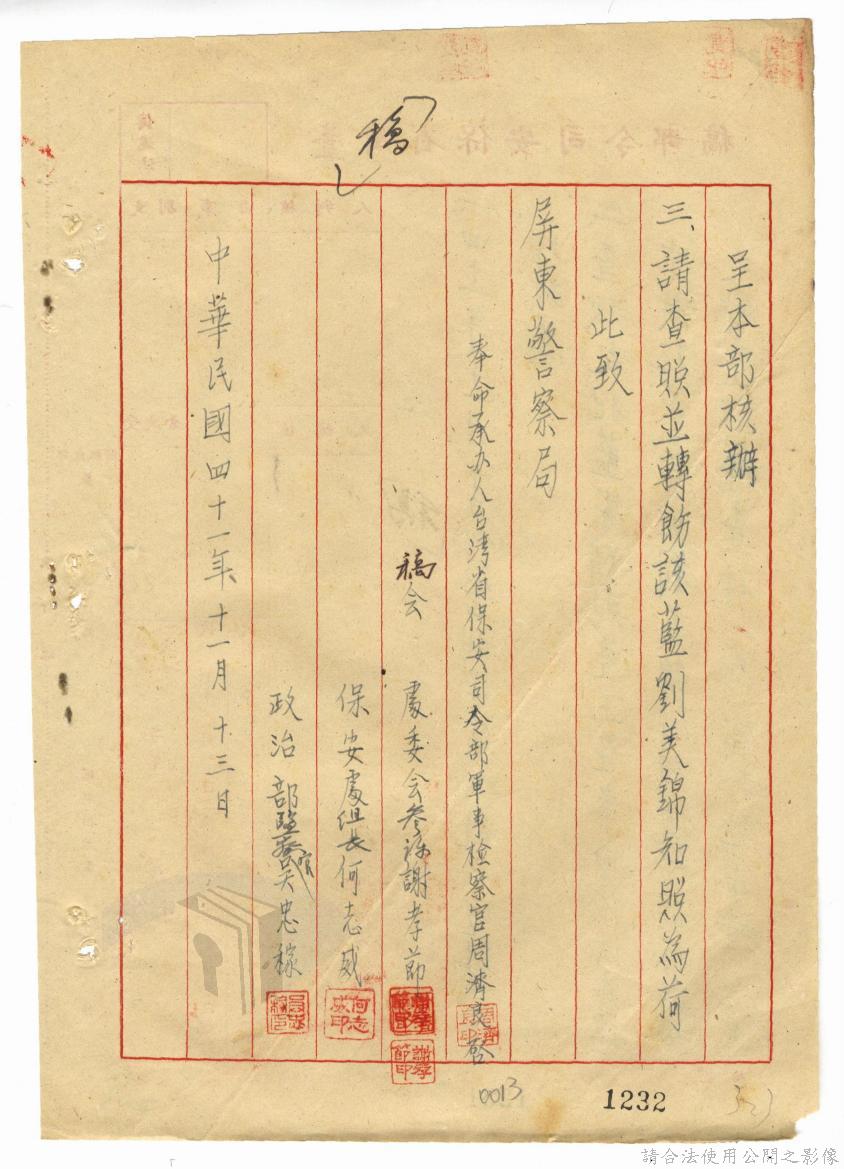 稿
呈本部核辦
三、請查照並轉飭該藍劉美錦知照為荷
此致
屏東警察局
奉命承办人台湾省保安司令部軍事檢察官周濟良啓
稿会 處委会參謀謝孝節
保安處組長何志威
政治部監察官吳忠稼
中華民國四十一年十一月十三日
何志威印
謝孝節印
0013
1232
請合法使用公開之影像